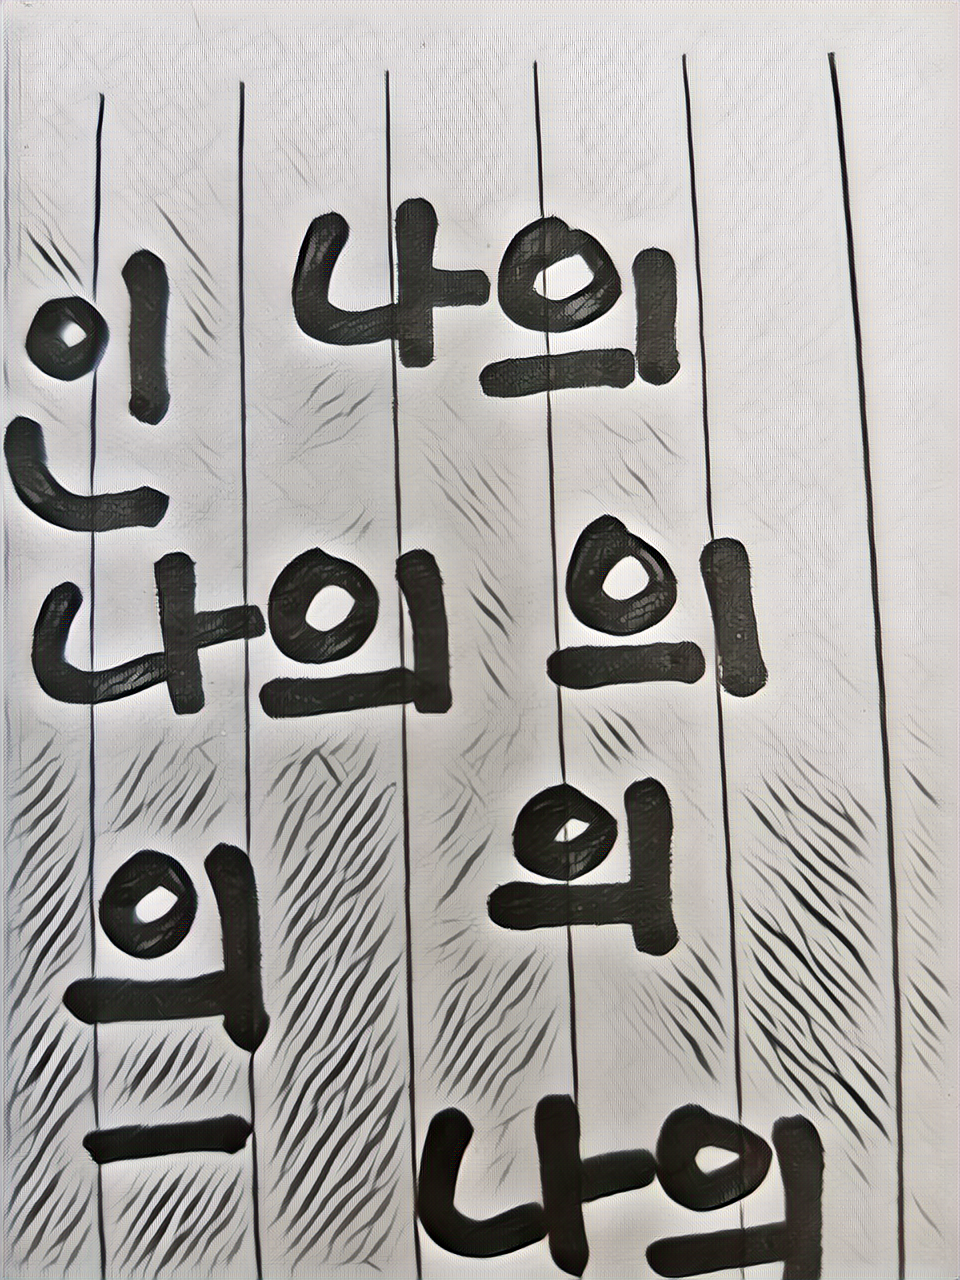 인 나의
나의 의
의 의
ㅡ 나의